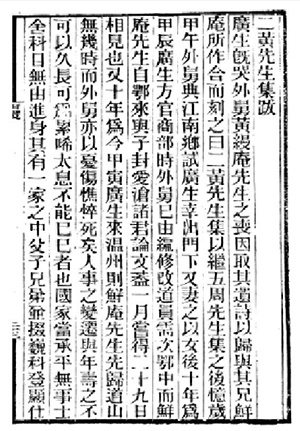 二黃先生集跋
廣生既哭外舅黃縵庵先生之喪因取其遺詩以歸與其兄鮮
庵所作合而刻之曰二黃先生集以繼五周先生集之後憶歲
甲午外舅典江南鄉試廣生幸出門下又妻之以女後十年為
甲辰廣生方官商部時外舅已由編修改道員需次鄂中而鮮
庵先生自鄂來與子封愛滄諸君論文蓋一月嘗得二十九日
相見也又十年為今甲寅廣生來溫州則鮮庵先生先歸道山
無幾時而外舅亦以憂傷憔悴死矣人事之變遷與年壽之不
可以久長可為累唏太息不能已已者也國家當承平無事士
舍科目無由進身其有一家之中父子兄弟掇巍科登顯仕